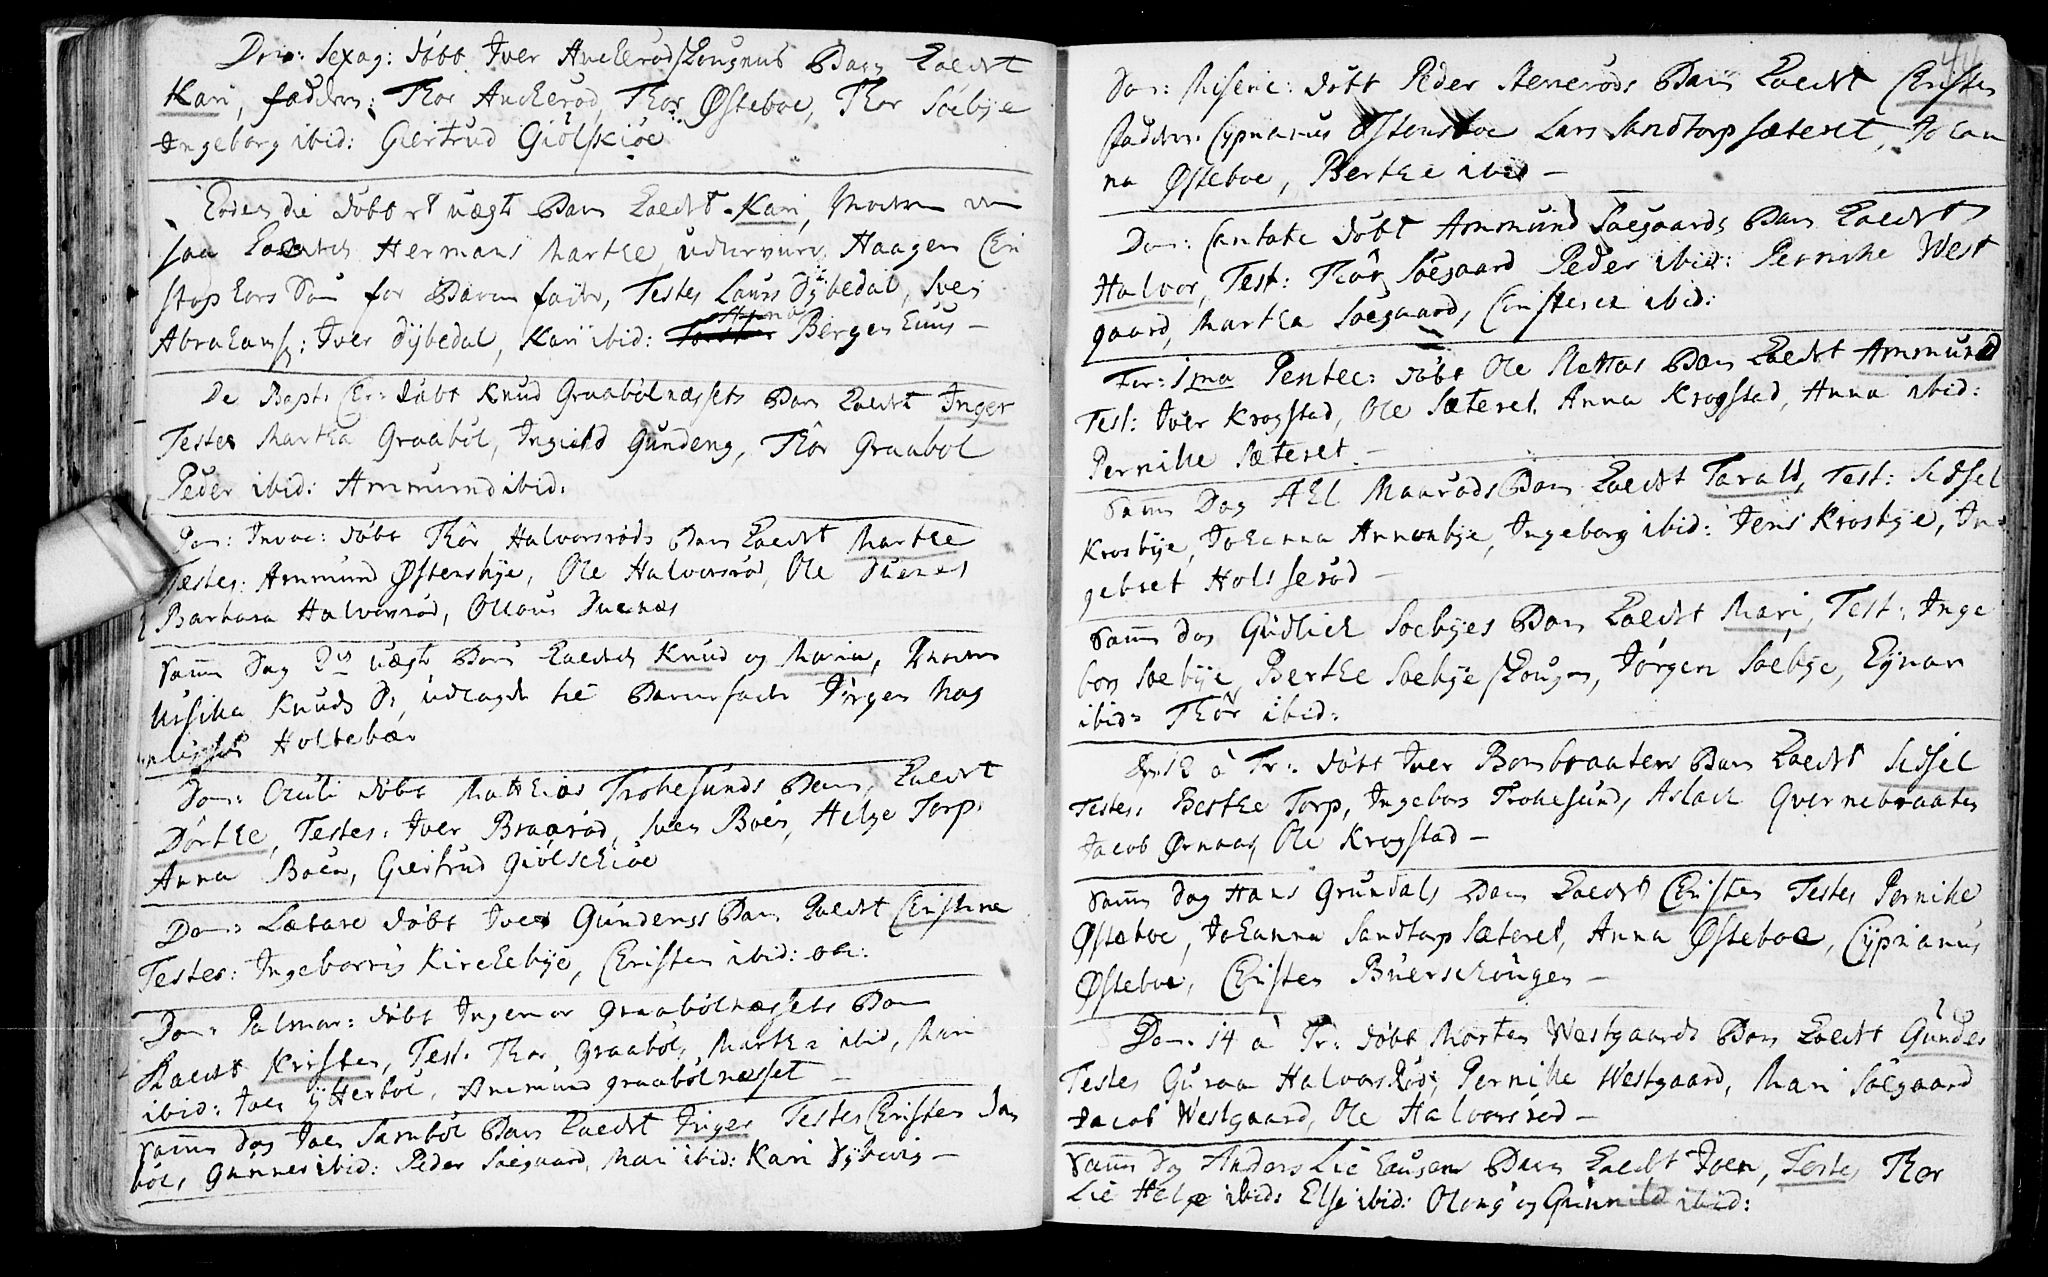 Dni: Sexag: döbt Iver Anckerød Hougnes Barn kaldet
Kari, fadder: Thor Anckerød, Thor Østeboe, Thor Söebye
Ingeborg ibid: Giertrud Giölskiöe
Eodem die döbt et uægte Barn kaldet Kari, Moderen
saa kaldet Hermans Marthe, udlagde Haagen Chri
stophers Sön for Barne fader, Testes Laurs Dÿbedal, Sven
Abrahams: Iver Dÿbedal, Kari ibid: Anna Bergerhuus –
De Bapt. Chr: döbt Knud Graabölnæssets Barn kaldet Inger
Testes Martha Graaböl, Ingield Gundeng, Thor Graabol
Peder ibid: Ammund ibid.
Dom: Invoc: döbt Thor Halvorsröds Barn kaldet Marthe
Testes: Ammund Østensbye, Ole Halvorsrød, Ole Duenes
Barbara Halvorsröd, Ollaus Duenæs
Samme Dag 2de uægte Börn kaldet Knud og Maria, Moderen
Knuds D: udlagde til Barnefader Jörgen Mag
Holtebær
Dom: Oculi döbt Matthias Trohesunds Barn, kaldet
Dorthe, Testes: Iver Braaröd, Sven Böen, Helge Torp.
Anna Boen, Giertrud Giölschiöe
Dom: Lætare döbt Iver Gundengs Barn kaldet Christine
Testes: Ingeborris Kirchebÿe, Christen ibid: etc:
Dom: Palmar: döbt Ingemor Graabölnæssets Barn
kaldet Kristen, Test. Thor Graaböl, Marthe ibid, Mari
ibid: Iver Ÿtterböl, Ammund Graabölnæsset –
Samme dag Iver Sanböl Barn kaldet Inger Testes Christen San
böl, Gunner ibid: Peder Söegaard, Mari ibid: Kari Dÿbevig –
Dom: Miseric: döbt Peder Stenerøds Barn kaldet Christen
fadder. Cyprianus Østensboe Lars Sandtorp sæteret, Johan
na Østeboe, Berthe ibid –
Dom: Cantate döbt Ammund Söegaards Barn kaldet
Halvor, Test: Thor Söegaard Peder ibid: Pernihe West
gaard, Martha Söegaard, Christence ibid:
Fer: 1ma Pentec: döbt Ole Barn kaldet Ammund
Test: Iver Krogstad, Ole Sæteret, Anna Krogstad, Anna ibid:
Pernihe Sæteret. –
Samme Dag Ahl Maaröds Barn kaldet Tarald, Test: Sidsel
Krosbÿe, Johanna Annonbye, Ingeborg ibid: Jens Krosbye, In
gebret Holsseröd –
Samme dag Gudlich Soebÿes Barn kaldet Mari, Test: Inge
bor Soebÿe Berthe Soebÿe Hougen, Jörgen Söebye, Eÿnar
ibid: Thor ibid:
Dom: 12 à Tr: döbt Iver Bonbraatens Barn kaldet Sidsel
Testes: Berthe Torp, Ingebor Trohesund, Aslach Qvernebraaten
Jacob Ørnaas, Ole Krogstad –
Samme dag Hans Grundals Barn kaldet Christen Testes Pernihe
Østeboe, Johanna Sandtorp Sæteret, Anna Østeboe, Cÿprianus
Østeboe, Christen Buerschougen –
Dom. 14 à Tr: döbt Morten Westgaards Barn kaldet Gunder
Testes Guraa Halvorsröd, Pernihe Westgaard, Mari Söegaard
Jacob Westgaard, Ole Halvorsröd –
Samme dag Anders Lie haugen Barn kaldet Iver, Testes Thor
Lie Helge ibid: Else ibid: Olong og Gunnild ibid: